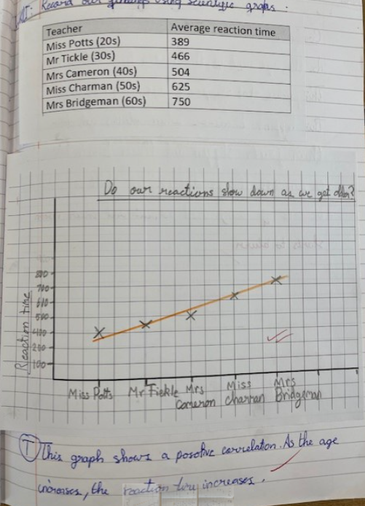 Record our findings using scientific graphs.
Teacher Average reaction time
Miss Potts (20s) 389
Mr Tickle (30s) 466
Mrs Cameron (40s) 504
Miss Charman (50s) 625
Mrs Bridgeman (60s) 750
Do our reactions slow down as we get older?
800
700
600
500
400
200
100
Reaction time
Miss Potts Mr Tickle Mrs Cameron Miss Charman Mrs Bridgeman
T This graph shows a posotive correlation. As the age
increases, the reaction time increases.